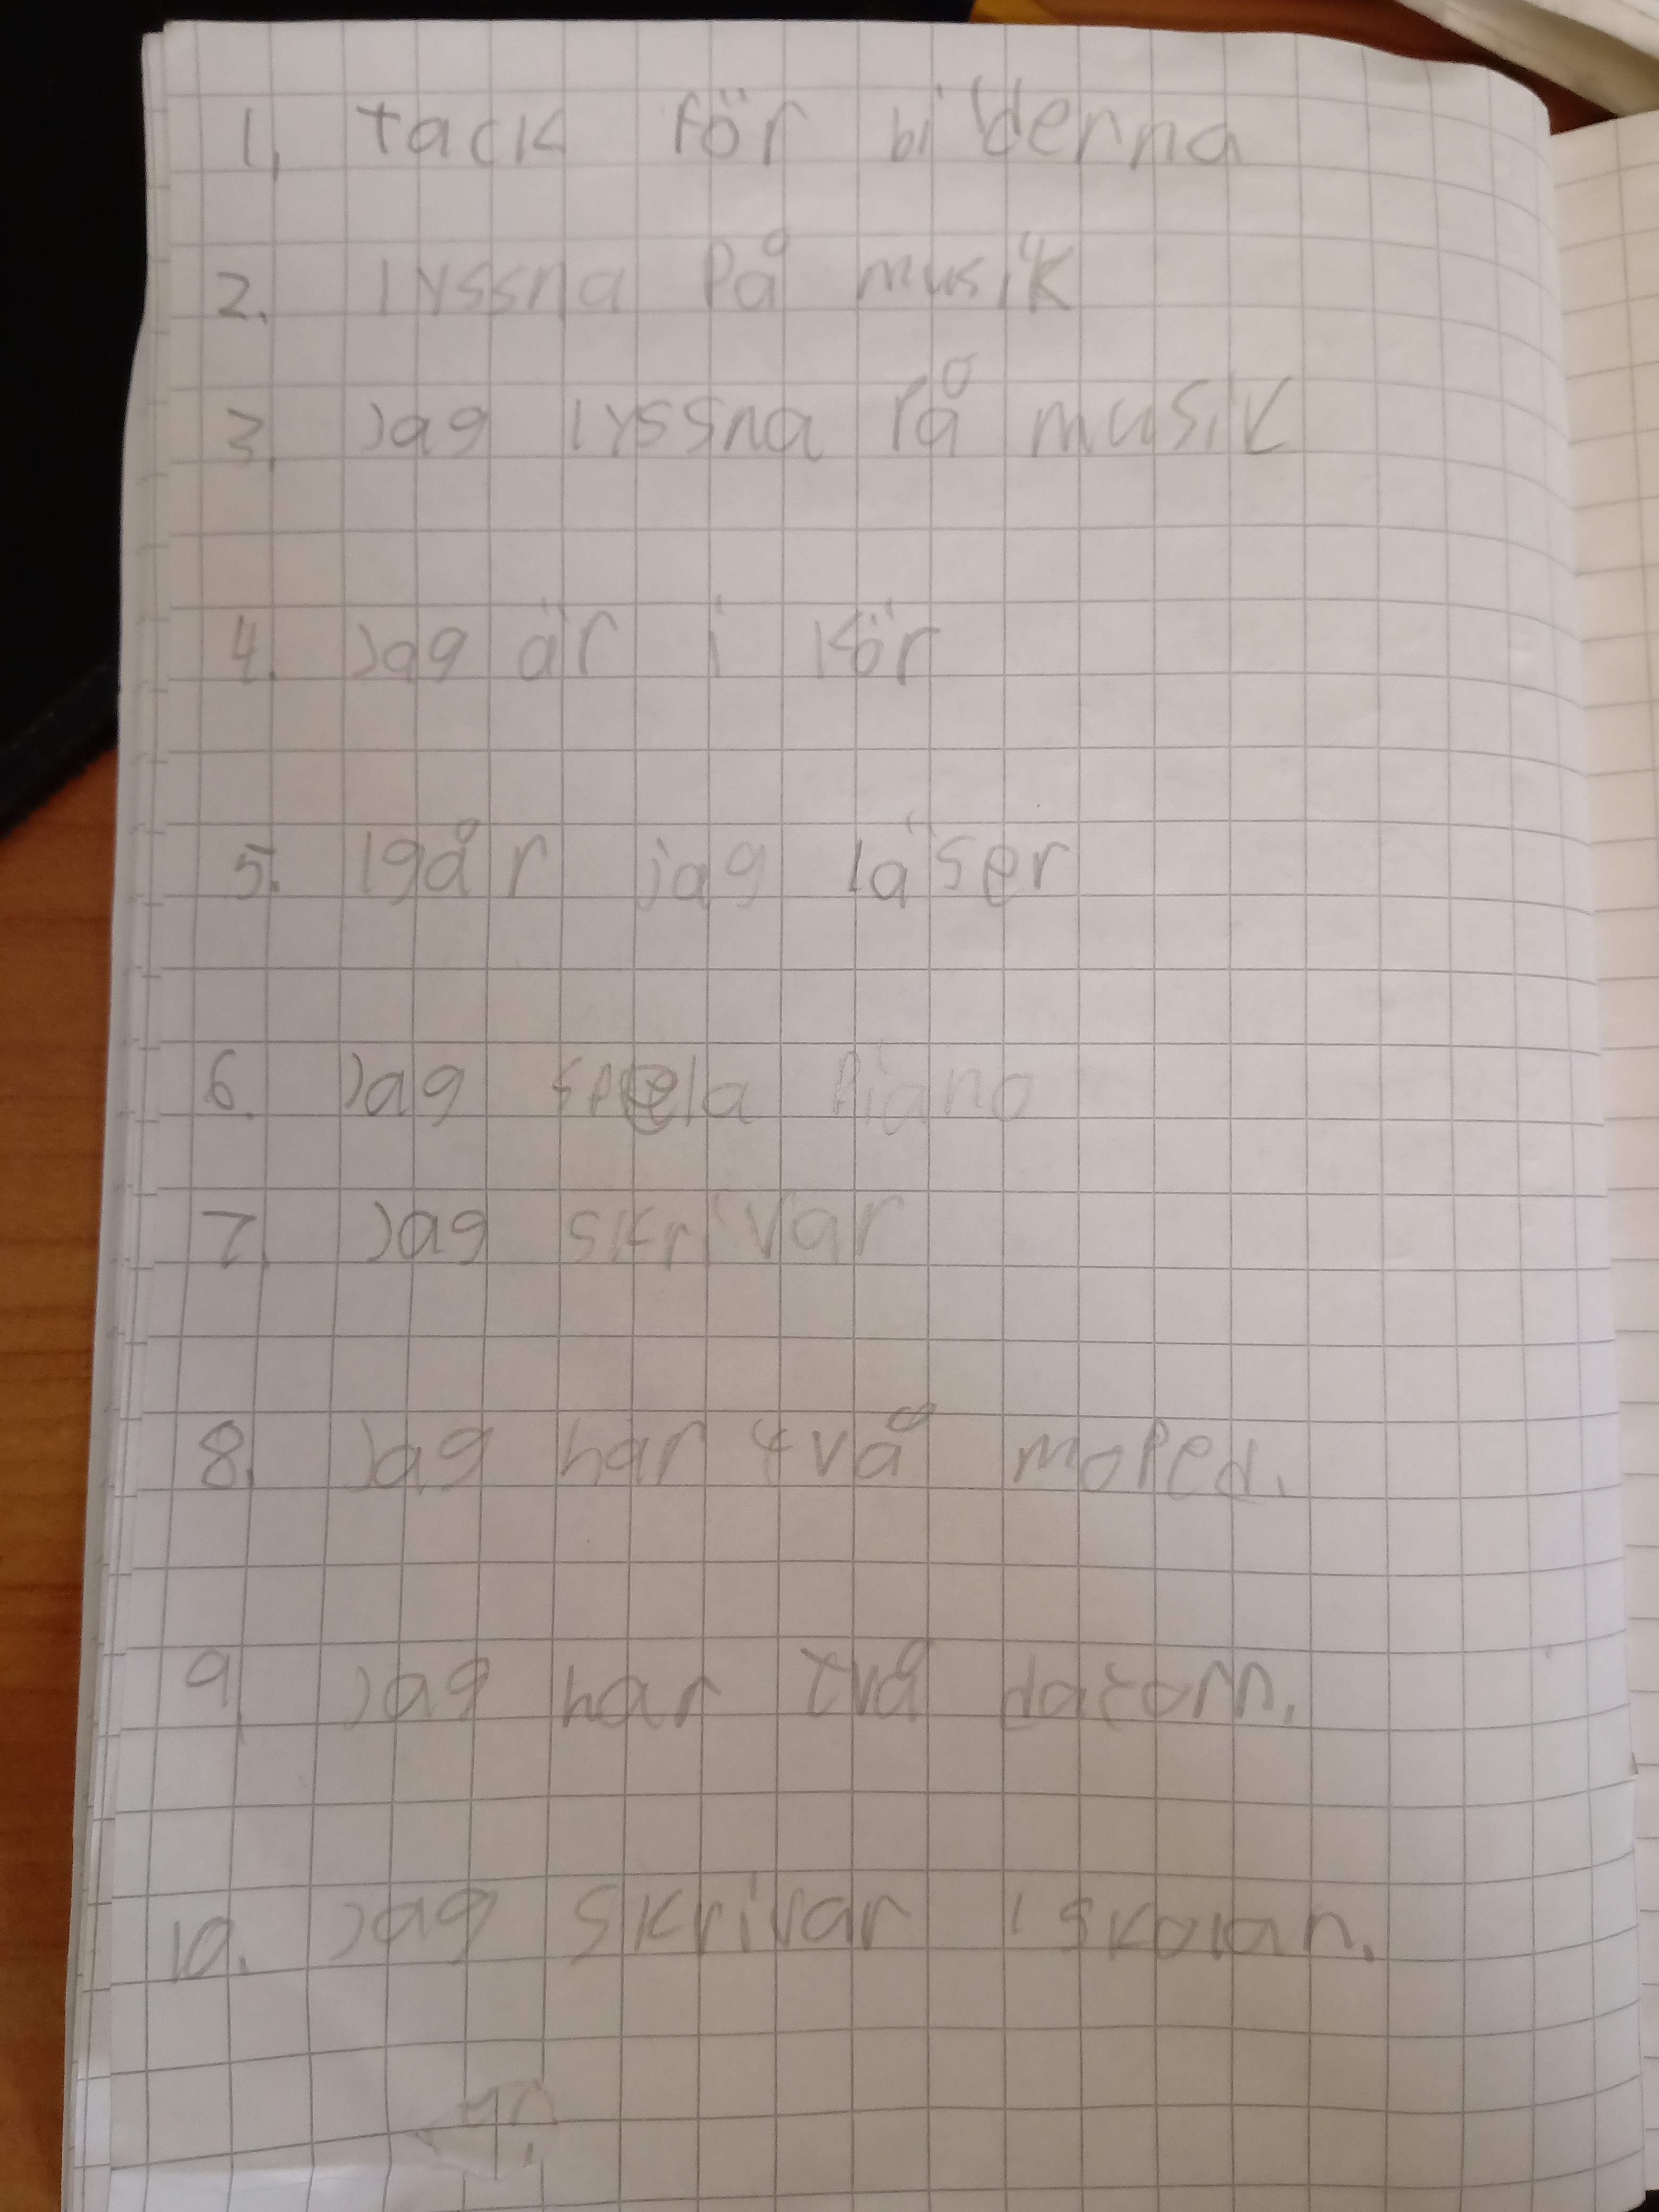 1. tack för bilderna
2. lyssna på musik
3. Jag lyssna på musik
4. Jag är i kör
5. Igår jag läser
6. Jag spela piano
7. Jag skrivar
8. Jag har två moped.
9. Jag har två datorn.
10. Jag skrivar i skolan.